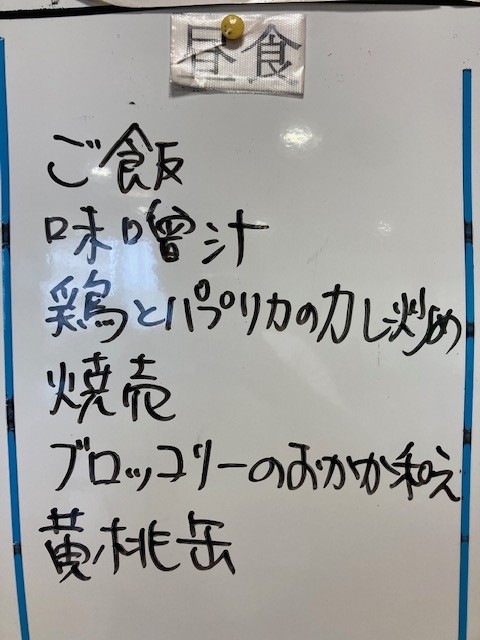 昼食
ご飯
味噌汁
鶏とパプリカのカレー炒め
焼売
ブロッコリーのおかか和え
黄桃缶